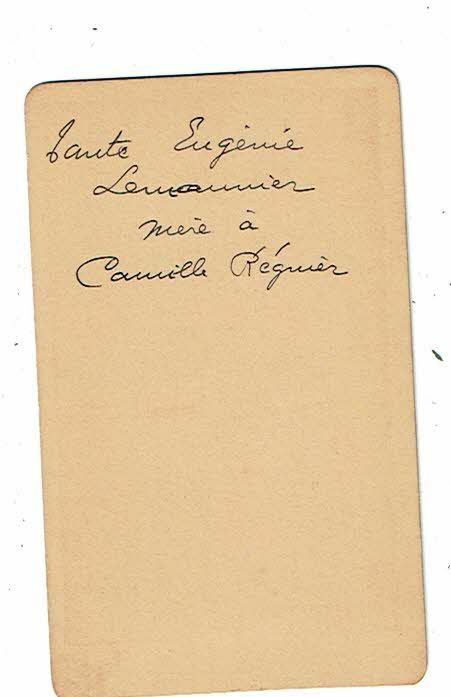 Tante Eugénie
Lemonnier
mère à
Camille Régnier